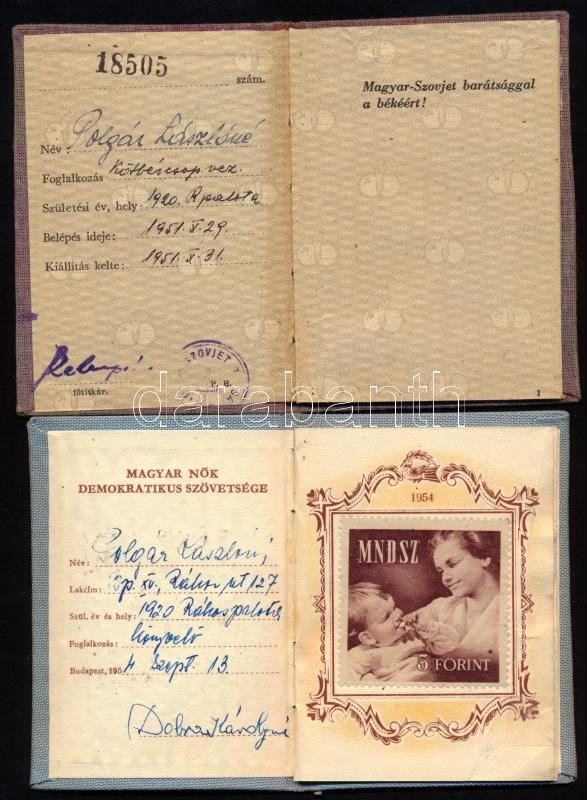 18505
szám.
Név: Polgár Lászlóné
Foglalkozás Kötbércsop. vez.
Születési év, hely: 1920. Rpalota
Belépés ideje: 1951. X. 29.
Kiállítás kelte: 1951. X. 31.
SZOVJET
P. H.
főtitkár.
Magyar-Szovjet barátsággal
a békéért!
1
darabanth
MAGYAR NŐK
DEMOKRATIKUS SZÖVETSÉGE
Név: Polgár Lászlóné
Lakcím: Bp. XV. Rákos út 127
Szül. év és hely: 1920 Rákospalota
Foglalkozás: könyvelő
Budapest, 1954 Szept. 13
Dobrai Károlyné
1954
MNDSZ
5 FORINT